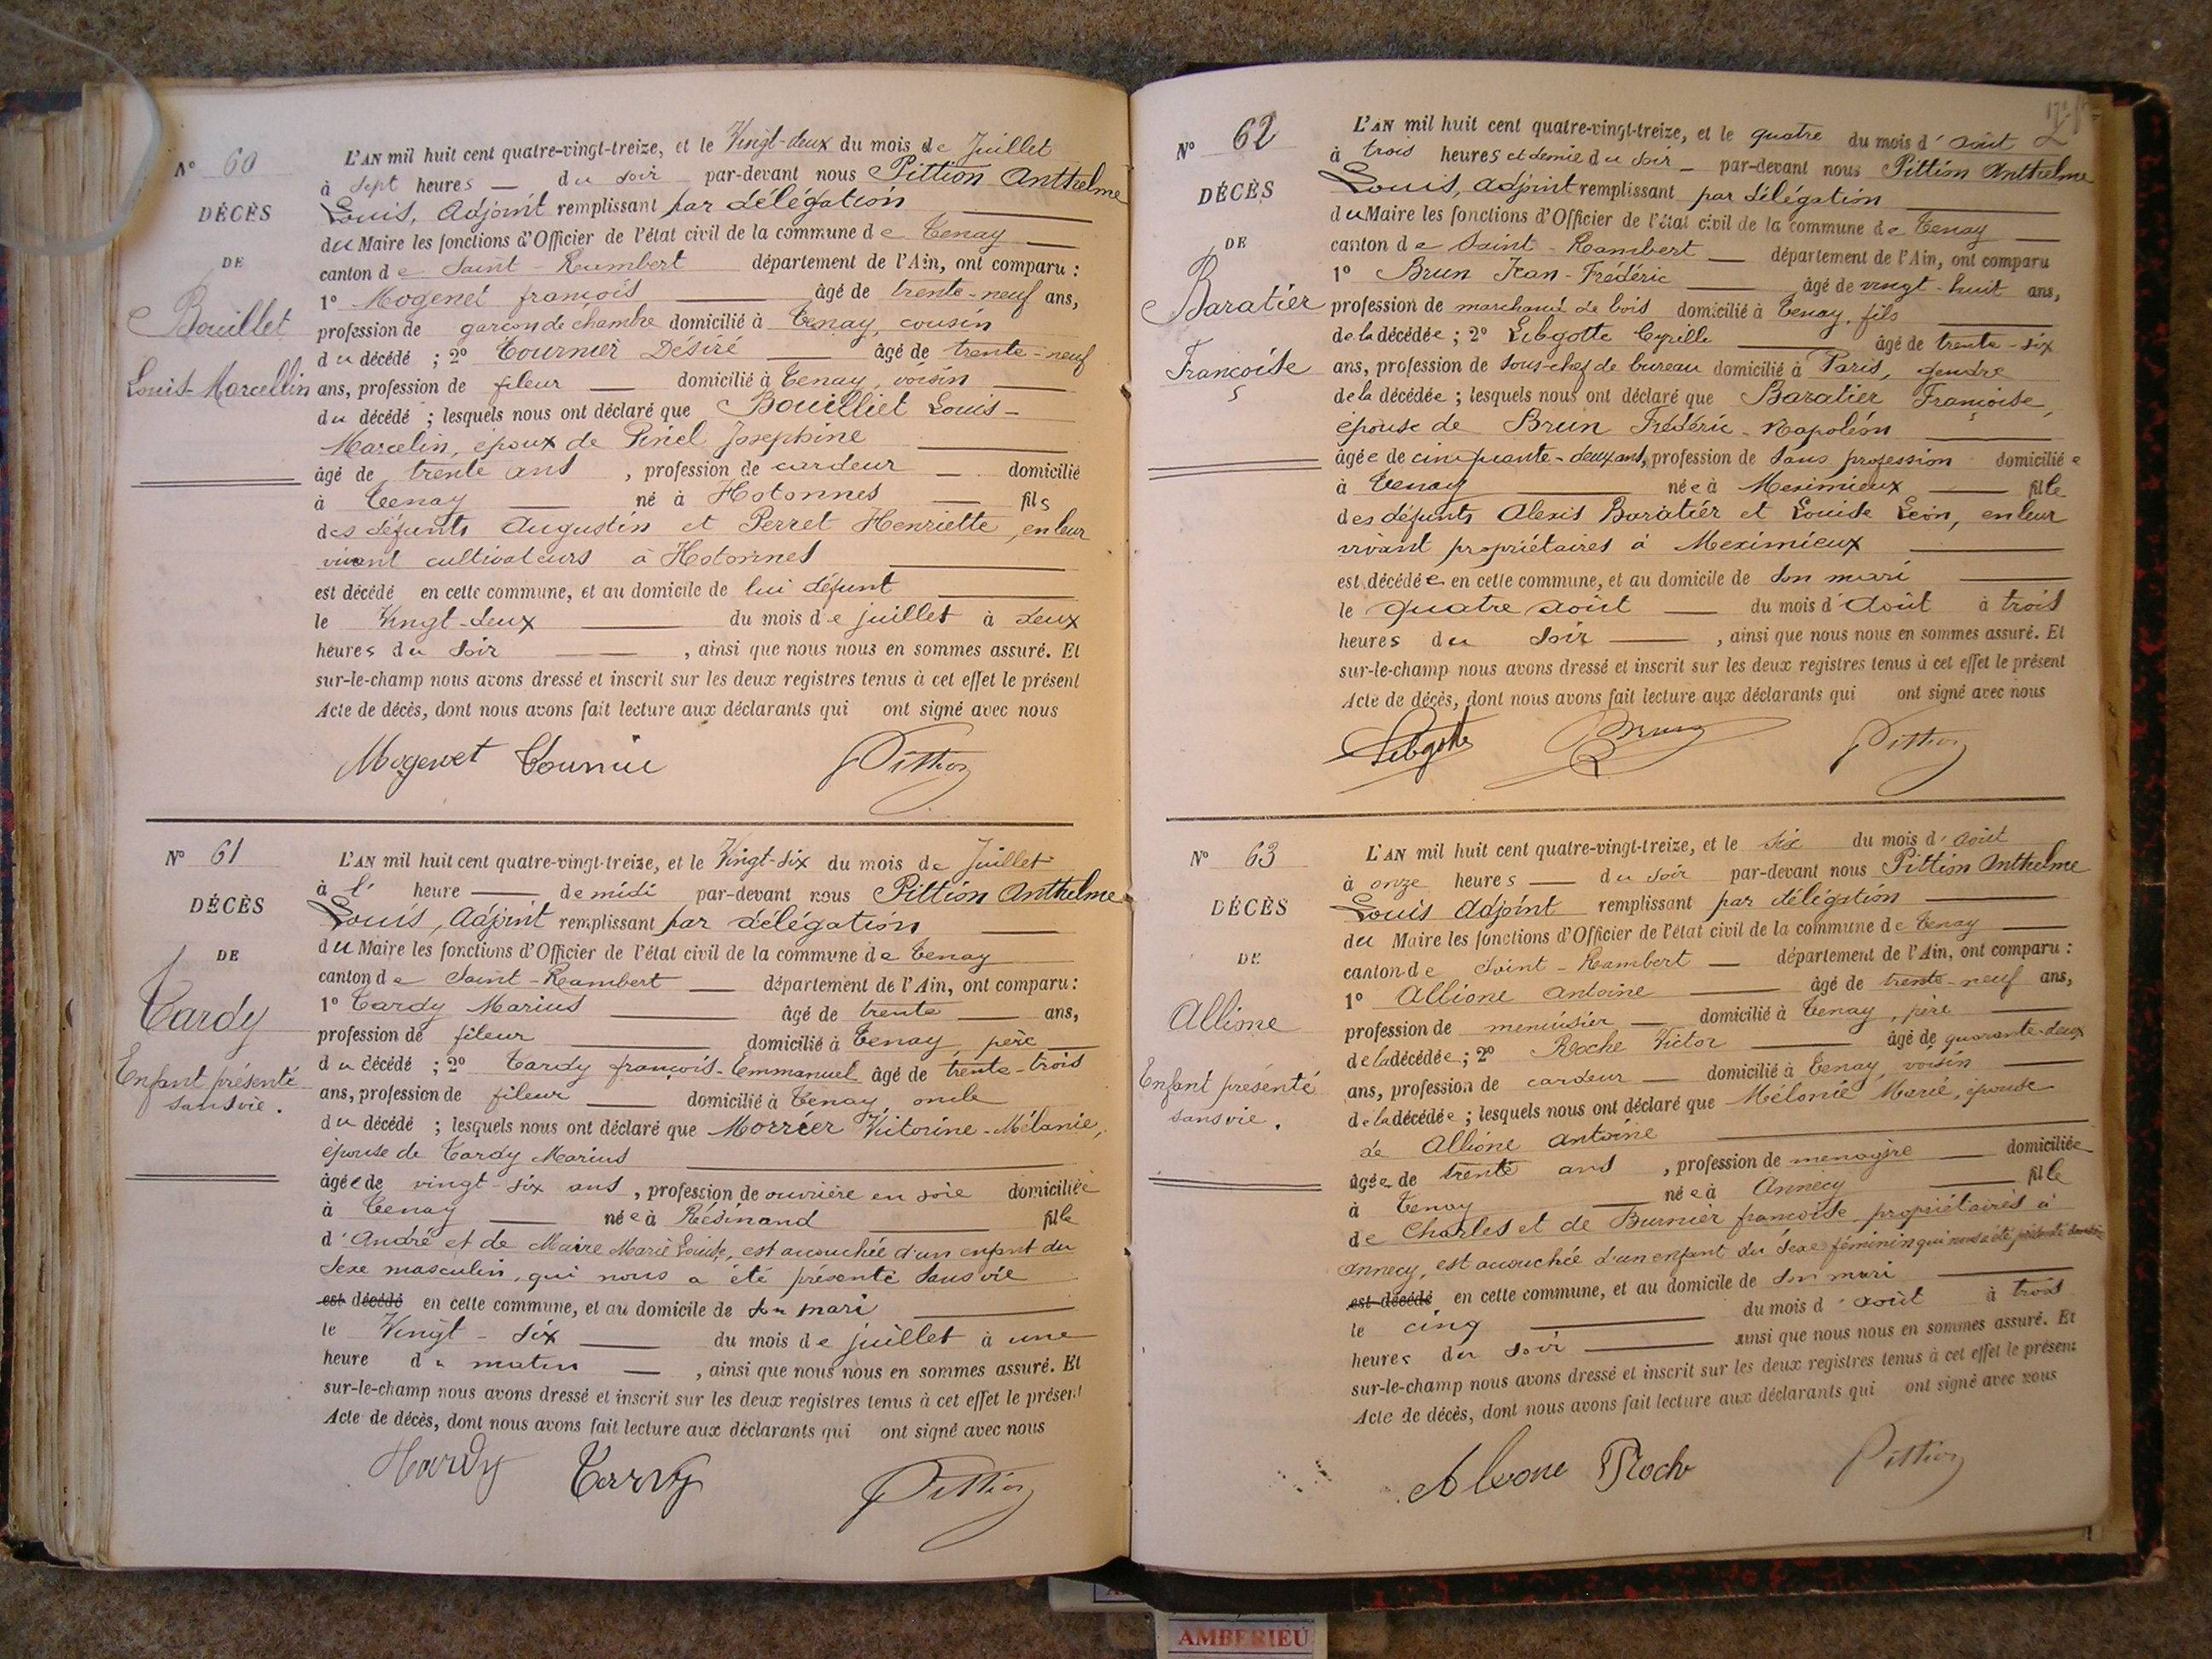 N° 60
DÉCÈS
DE
Bouillet
Louis-Marcellin
L'AN mil huit cent quatre-vingt-treize, et le Vingt-deux du mois de Juillet
à Sept heures — du soir — par-devant nous Pittion Anthelme
Louis, Adjoint remplissant par délégation
du Maire les fonctions d'Officier de l'état civil de la commune de Tenay
canton de Saint-Rambert département de l'Ain, ont comparu :
1° Mogenet françois âgé de trente-neuf ans,
profession de garçon de chambre domicilié à Tenay, cousin
du décédé ; 2° Tournier Désiré âgé de trente-neuf
ans, profession de fileur domicilié à Tenay, voisin
du décédé ; lesquels nous ont déclaré que Bouilliet Louis-
Marcelin, époux de Pinel Joséphine
âgé de trente ans , profession de cardeur domicilié
à Tenay né à Hotonnes fils
des défunts Augustin et Perret Henriette, en leur
vivant cultivateurs à Hotonnes
est décédé en cette commune, et au domicile de lui défunt
le Vingt-deux du mois de juillet à deux
heures du soir , ainsi que nous nous en sommes assuré. Et
sur-le-champ nous avons dressé et inscrit sur les deux registres tenus à cet effet le présent
Acte de décès, dont nous avons fait lecture aux déclarants qui ont signé avec nous
Mogenet Tournier Pittion
N° 61
DÉCÈS
DE
Tardy
Enfant présenté
sans vie.
L'AN mil huit cent quatre-vingt-treize, et le Vingt-six du mois de Juillet
à l' heure — de midi par-devant nous Pittion Anthelme
Louis, Adjoint remplissant par délégation
du Maire les fonctions d'Officier de l'état civil de la commune de Tenay
canton de Saint-Rambert département de l'Ain, ont comparu :
1° Tardy Marius âgé de trente ans,
profession de fileur domicilié à Tenay, père
du décédé ; 2° Tardy françois-Emmanuel âgé de trente-trois
ans, profession de fileur domicilié à Tenay, oncle
du décédé ; lesquels nous ont déclaré que Morrier Victorine-Mélanie,
épouse de Tardy Marius
âgée de vingt-six ans , profession de ouvrière en soie domiciliée
à Tenay née à Résinand fille
d'André et de Maire Marie Louise, est accouchée d'un enfant du
Sexe masculin, qui nous a été présenté sans vie
est décédé en cette commune, et au domicile de son mari
le Vingt-six du mois de juillet à une
heure du matin , ainsi que nous nous en sommes assuré. Et
sur-le-champ nous avons dressé et inscrit sur les deux registres tenus à cet effet le présent
Acte de décès, dont nous avons fait lecture aux déclarants qui ont signé avec nous
Tardy Pittion
N° 62
DÉCÈS
DE
Baratier
Françoise
L'AN mil huit cent quatre-vingt-treize, et le quatre du mois d'août
à trois heures et demie du soir — par-devant nous Pittion Anthelme
Louis, Adjoint remplissant par délégation
du Maire les fonctions d'Officier de l'état civil de la commune de Tenay
canton de Saint-Rambert département de l'Ain, ont comparu
1° Brun Jean-Frédéric âgé de vingt-huit ans,
profession de marchand de bois domicilié à Tenay, fils
de la décédée ; 2° Libgotte Cyrille âgé de trente-six
ans, profession de sous-chef de bureau domicilié à Paris, gendre
de la décédée ; lesquels nous ont déclaré que Baratier Françoise,
épouse de Brun Frédéric-Napoléon
âgée de cinquante-deux ans, profession de sans profession domiciliée
à Tenay née à Meximieux fille
des défunts Alexis Baratier et Louise Léon, en leur
vivant propriétaires à Meximieux
est décédée en cette commune, et au domicile de son mari
le quatre août du mois d'août à trois
heures du soir , ainsi que nous nous en sommes assuré. Et
sur-le-champ nous avons dressé et inscrit sur les deux registres tenus à cet effet le présent
Acte de décès, dont nous avons fait lecture aux déclarants qui ont signé avec nous
Libgotte Brun Pittion
N° 63
DÉCÈS
DE
Allione
Enfant présenté
sans vie.
L'AN mil huit cent quatre-vingt-treize, et le six du mois d'août
à onze heures — du soir par-devant nous Pittion Anthelme
Louis Adjoint remplissant par délégation
du Maire les fonctions d'Officier de l'état civil de la commune de Tenay
canton de Saint-Rambert département de l'Ain, ont comparu :
1° Allione Antoine âgé de trente-neuf ans,
profession de menuisier domicilié à Tenay, père
de la décédée ; 2° Roche Victor âgé de quarante-deux
ans, profession de cardeur domicilié à Tenay, voisin
de la décédée ; lesquels nous ont déclaré que Mélonié Marie, épouse
de Allione Antoine
âgée de trente ans , profession de menagère domiciliée
à Tenay née à Annecy fille
de Charles et de Burnier françoise propriétaires à
Annecy, est accouchée d'un enfant du sexe féminin qui nous a été présenté sans vie
est décédé en cette commune, et au domicile de son mari
le cinq du mois d'août à trois
heures du soir ainsi que nous nous en sommes assuré. Et
sur-le-champ nous avons dressé et inscrit sur les deux registres tenus à cet effet le présent
Acte de décès, dont nous avons fait lecture aux déclarants qui ont signé avec nous
Alione Roche Pittion
AMBERIEU